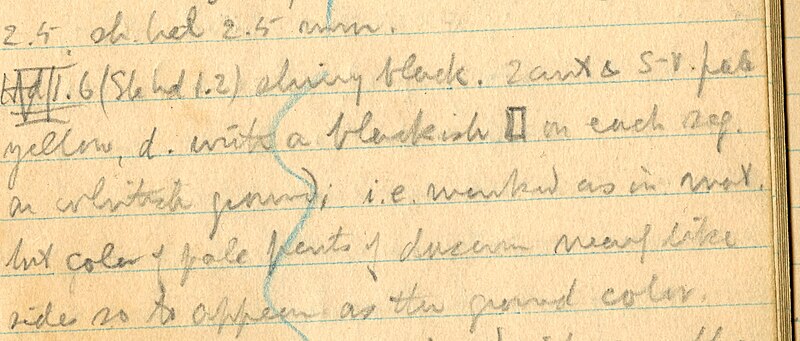 2.5, sh. hd 2.5 mm.
Hd 1.6 (St hd 1.2) shiny black. 2 ant & s-v. pale
yellow, d. with a blackish on each seg.
on whitish ground; i.e. marked as in mat.
but color of pale parts of dorsum nearly like
sides so to appear as the ground color.